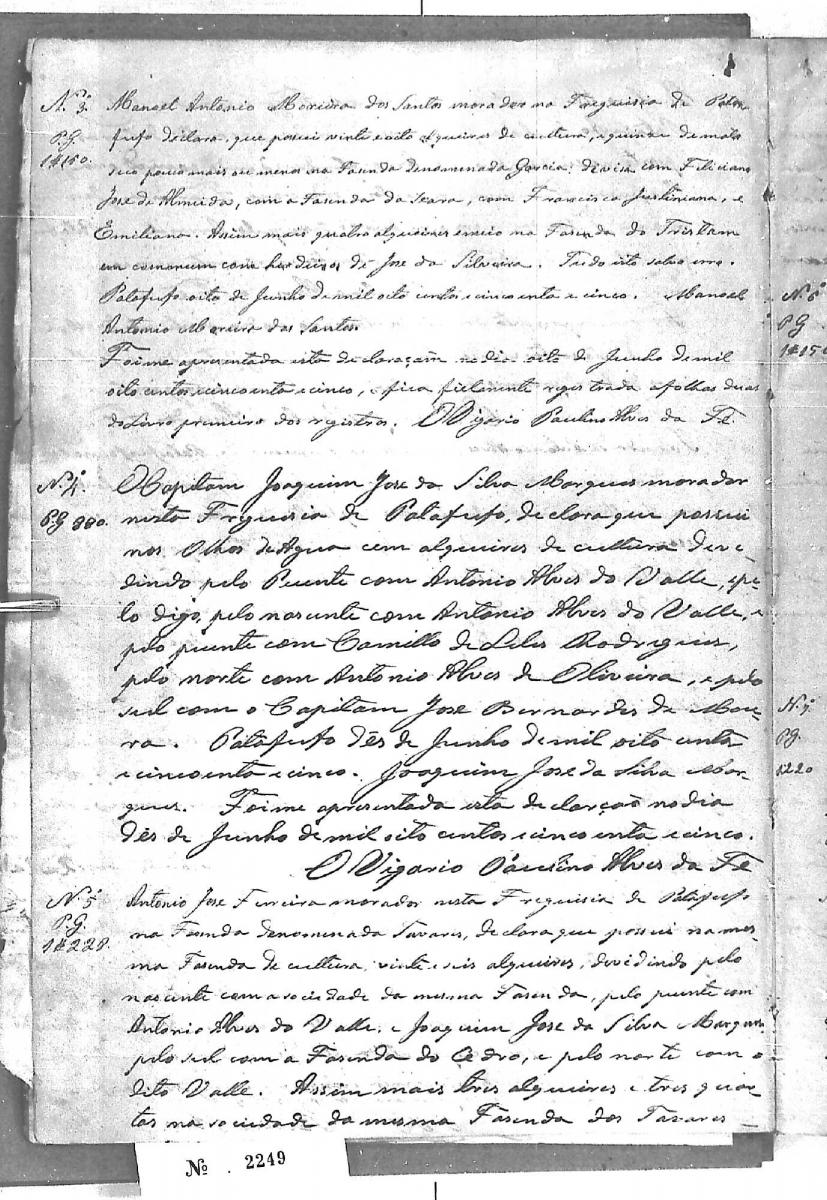 N.º 3.
P.G.
1#160.
Manoel Antonio Moreira dos Santos morador na Freguisia de Pata-
fufo declara, que possui vinte e oito alqueires de cultura, e quinze de mato
seco pouco mais ou menos na Fasenda denomenada Garcia: devisa com Feliciano
Jose de Almeida, com a Fasenda da Seara, com Francisca Justiniana, e
Emiliana. Assim mais quatro alqueires e meio na Fasenda do Tristam
em commum com herdeiros de Jose da Silveira. Tudo isto salvo erro.
Patafufo oito de Junho de mil oito centos e cincoenta e cinco. Manoel
Antonio Moreira dos Santos
Foi me apresentada esta declaraçam no dia oito de Junho de mil
oito centos e cincoenta e cinco, e fica fielmente registrada a folhas duas
do Livro primeiro dos registros. O Vigario Paulino Alves da Fé.
N.º 4.
P.G 880.
O Capitam Joaquim Jose da Silva Marques morador
nesta Freguesia de Patafufo, declara que possui
nos Olhos de Agua cem alqueires de cultura deve-
dindo pelo Puente com Antonio Alves do Valle, epe-
lo digo, pelo nascente com Antonio Alves do Valle, e
pelo puente com Camillo de Lelis Rodrigues,
pelo norte com Antonio Alves de Oliveira, e pelo
sul com o Capitam Jose Bernardes de Mou-
ra. Patafufo dés de Junho de mil oito centos
e cincoenta e cinco. Joaquim Jose da Silva Mar-
ques. Foi me apresentada esta declarção no dia
dés de Junho de mil oito centos e cincoenta e cinco.
O Vigario Paulino Alves da Fé
N.º 5
P.G.
1#228.
Antonio Jose Ferreira morador nesta Freguisia de Patafufo
na Fasenda denomenada Tavares, declara que possui na mes-
ma Fasenda de cultura vinte e seis alqueires, devidindo pelo
nascente com a sociedade da mesma Fasenda, pelo puente com
Antonio Alves do Valle, e Joaquim Jose da Silva Marques
pelo sul com a Fasenda do Cedro, e pelo norte com o
dito Valle. Assim mais tres alqueires e tres quar-
tas na sociedade da mesma Fasenda dos Tavares-
N.º 6
P G
1#15
N.º 7.
P.G.
1220
Nº 2249